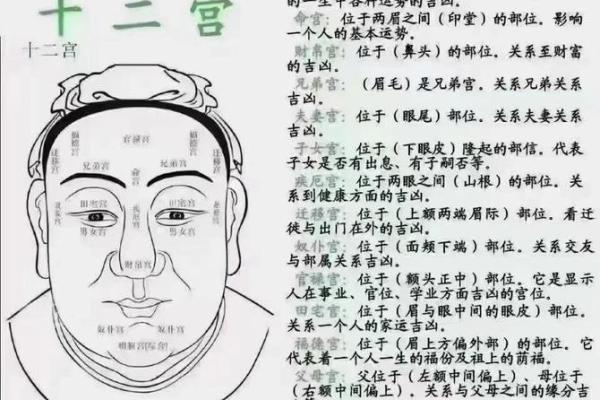 十二宫
十二宫
官禄宫
福德宫
福德宫
迁移宫
迁移宫
兄弟宫
兄弟宫
命宫
田宅宫
田宅宫
疾厄宫
男女宫
男女宫
财帛宫
奴仆宫
奴仆宫
的一生中各种运势的吉凶。
命宫：位于两眉之间（印堂）的部位。影响
一个人的基本运势。
财帛宫：位于（鼻头）的部位。关系至财富
的吉凶。
兄弟宫：（眉毛）是兄弟宫。关系兄弟关系
吉凶。
夫妻宫：位于（眼尾）部位。关系夫妻关系
吉凶。
子女宫：位于（下眼皮）隆起的部信。代表
子女是否有出息、有子嗣否等。
疾厄宫：位于两眼之间（山根）的部位。关
系到健康方面的吉凶。
迁移宫：位于（上额两端眉际）部位。看迁
徒与出门在外的吉凶。
奴仆宫：位于（面颊下端）部位。关系交友
与部属关系吉凶。
官禄宫：位于（额头正中）部位。它是显示
人在事业、官位、学业方面吉凶的宫位。
田宅宫：位于（眉与眼中间的眼皮）部位。
关系一个人的家运吉凶。
福德宫：位于（眉上方偏外部）的部位。它
代表着一个人一生的福份及祖上的荫福。
父母宫：父位于（左额中间偏上）、母位于
（右额中间偏上）。关系与父母之间的缘分吉